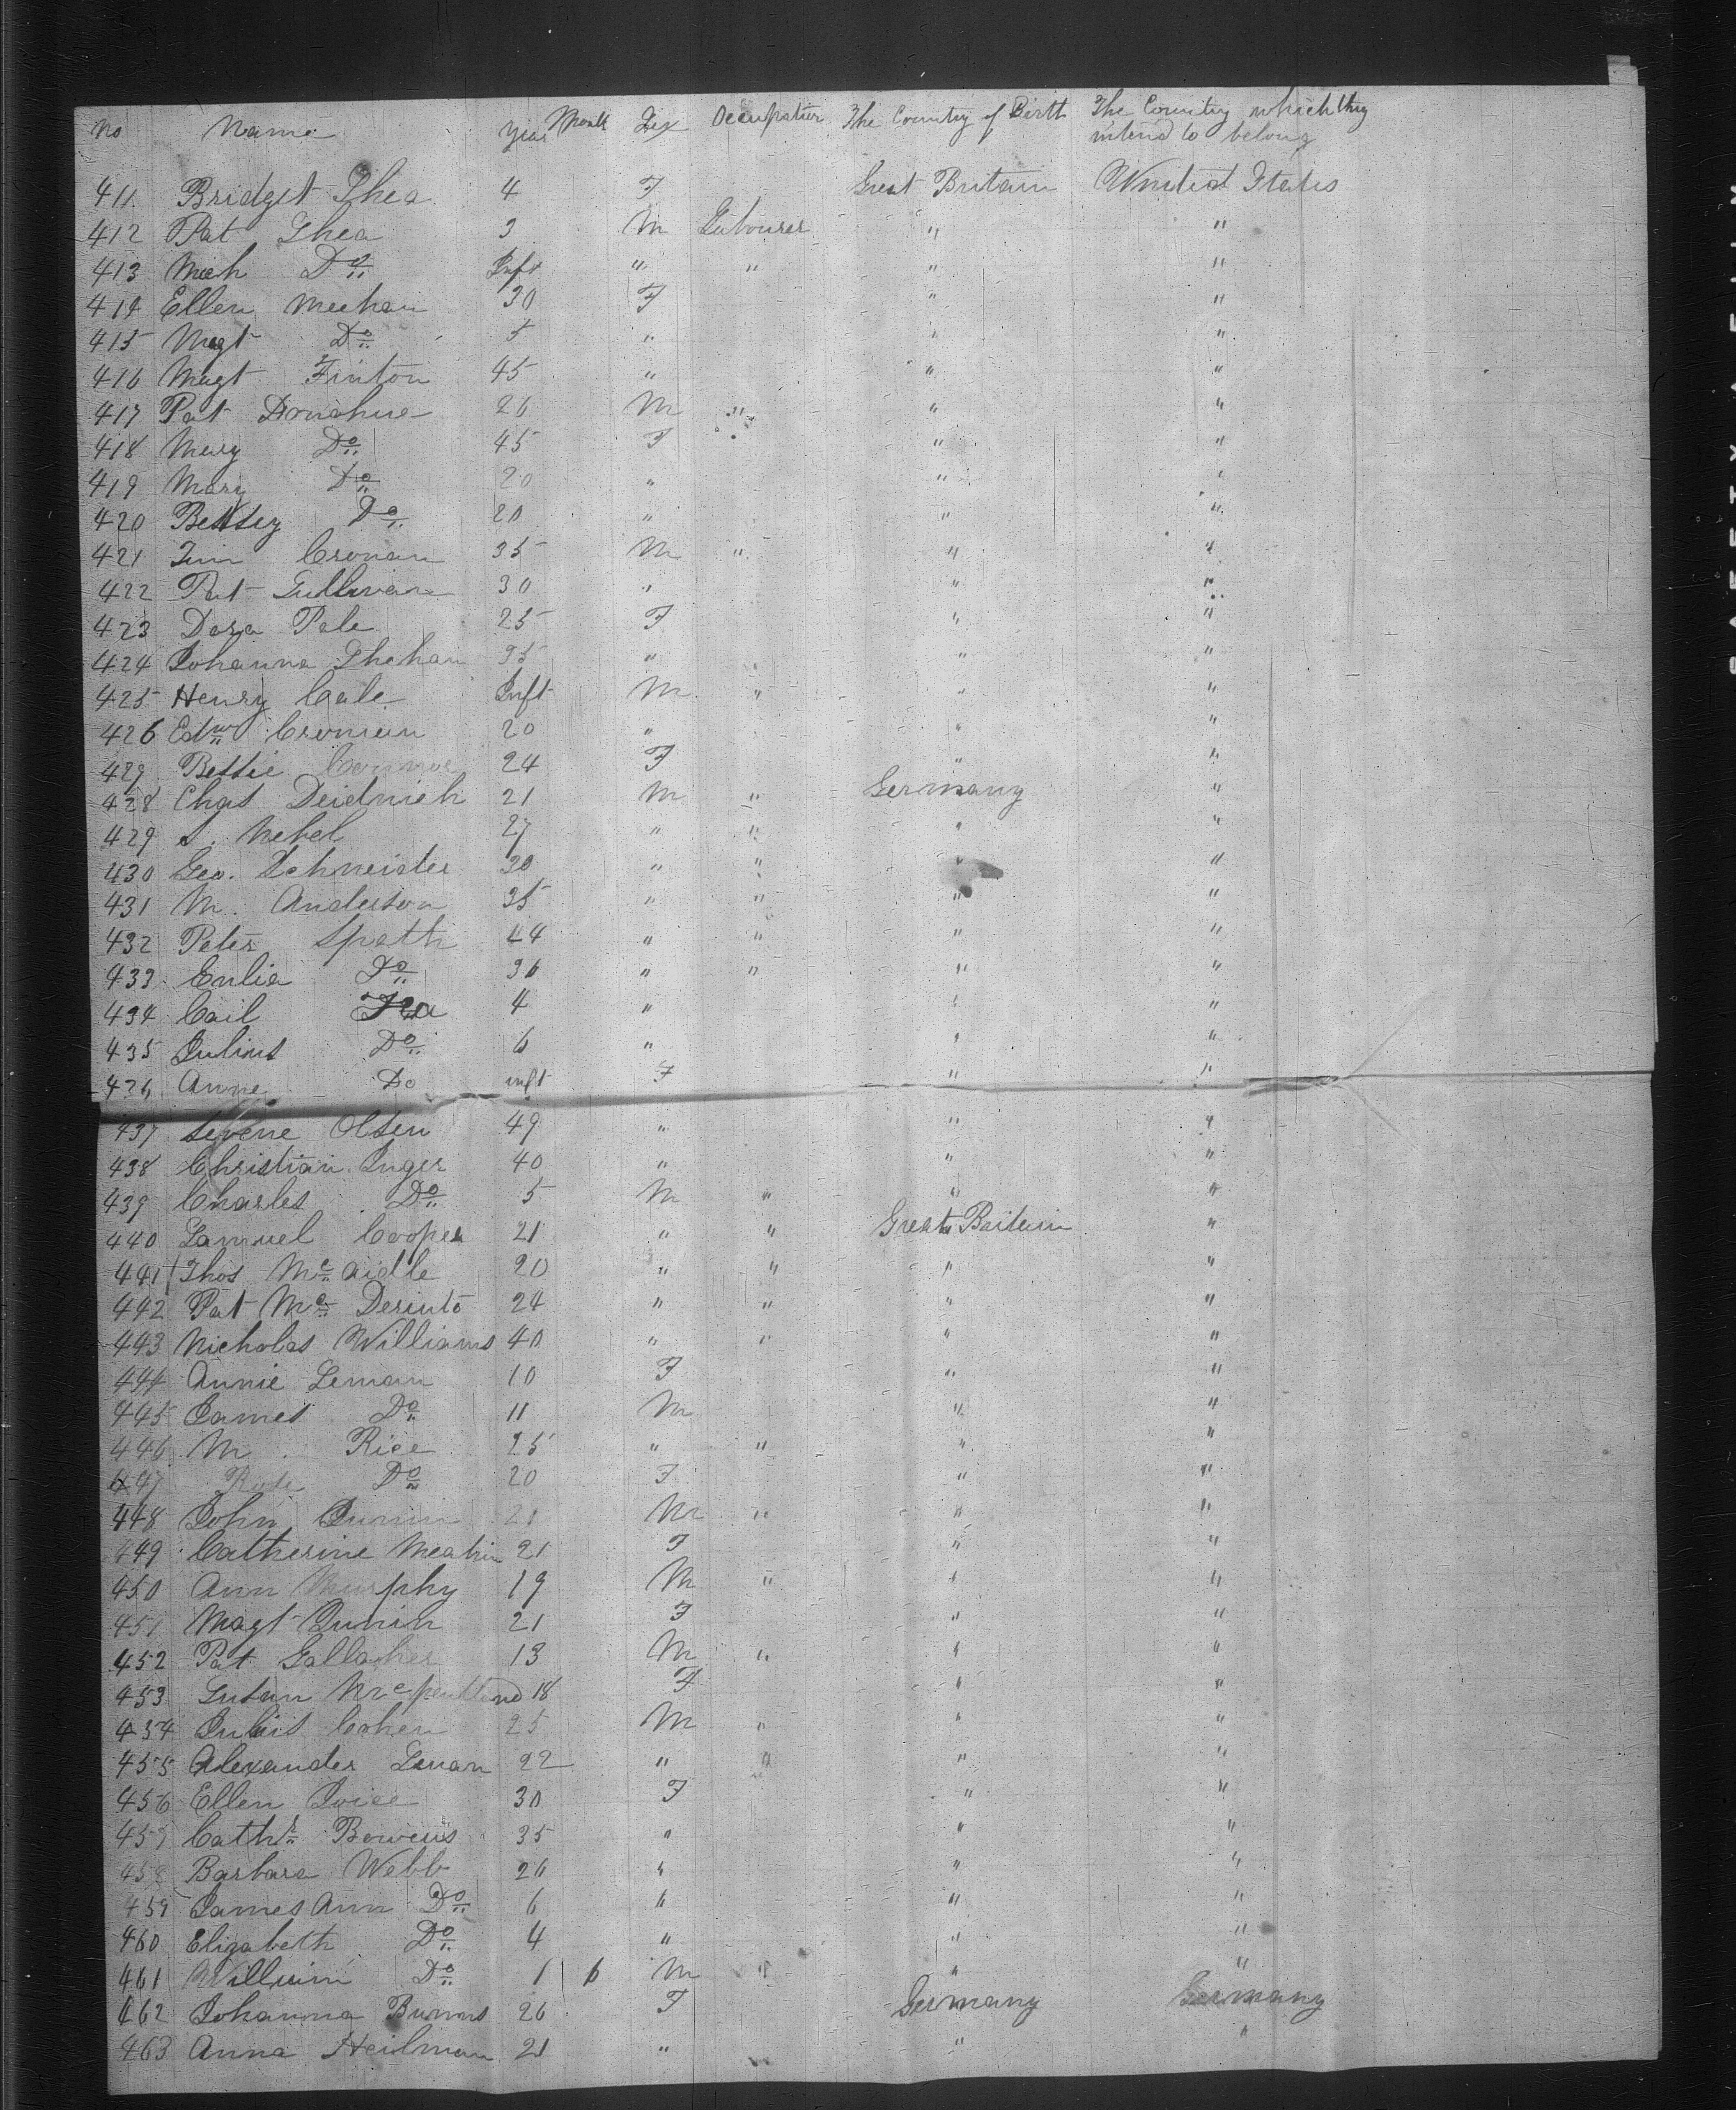 No Name Year Month Sex Occupation The Country of Birth The Country which they
intend to belong
411 Bridget Shea 4 F Great Britain United States
412 Pat Shea 3 M Labourer " "
413 Mich Do Inft " " " "
414 Ellen Meehan 30 F " "
415 Magt Do 5 " " "
416 Magt Finton 45 " " "
417 Pat Donohue 26 M " " "
418 Mary Do 45 F " "
419 Mary Do 20 " " "
420 Bettsey Do 20 " " "
421 Jim Cronan 35 M " " "
422 Pat Sullivan 30 " " "
423 Dora Pele 25 F " "
424 Johanna Shehan 35 " " "
425 Henry Cale Inft M " " "
426 Edwd Cronan 20 " " "
429 Bettie 24 F " "
428 Chas Deidrich 21 M " Germany "
429 S. Nebel 27 " " " "
430 Geo. Schneider 30 " " " "
431 M. Anderson 35 " " " "
432 Peter Spath 44 " " " "
433 Emlia Do 36 " " " "
434 Cail 4 " " "
435 Julius Do 6 " " "
436 Anne Do inft F " "
437 Severe Olsen 49 " " "
438 Christian Inger 40 " " "
439 Charles Do 5 M " " "
440 Samuel Cooper 21 " " Great Britain "
441 Thos Mc Aidle 20 " " " "
442 Pat Mc Derinto 24 " " " "
443 Nicholas Williams 40 " " " "
444 Annie Leman 10 F " "
445 James Do 11 M " "
446 M. Rice 25 " " " "
447 Rose Do 20 F " "
448 John 21 M " " "
449 Catherine Meahin 21 F " "
450 Ann Murphy 19 M " " "
451 Magt 21 F " "
452 Pat Gallagher 13 M " " "
453 Susan McPentland 18 F " "
454 Julius Cohen 25 M " " "
455 Alexander 22 " " " "
456 Ellen Joice 30 F " "
457 Cathr Bowens 35 " " "
458 Barbara Webb 26 " " "
459 James Ann Do 6 " " "
460 Elizabeth Do 4 " " "
461 William Do 1 6 M " " "
462 Johanna Burms 26 F Germany Germany
463 Anna Heilman 21 " " "